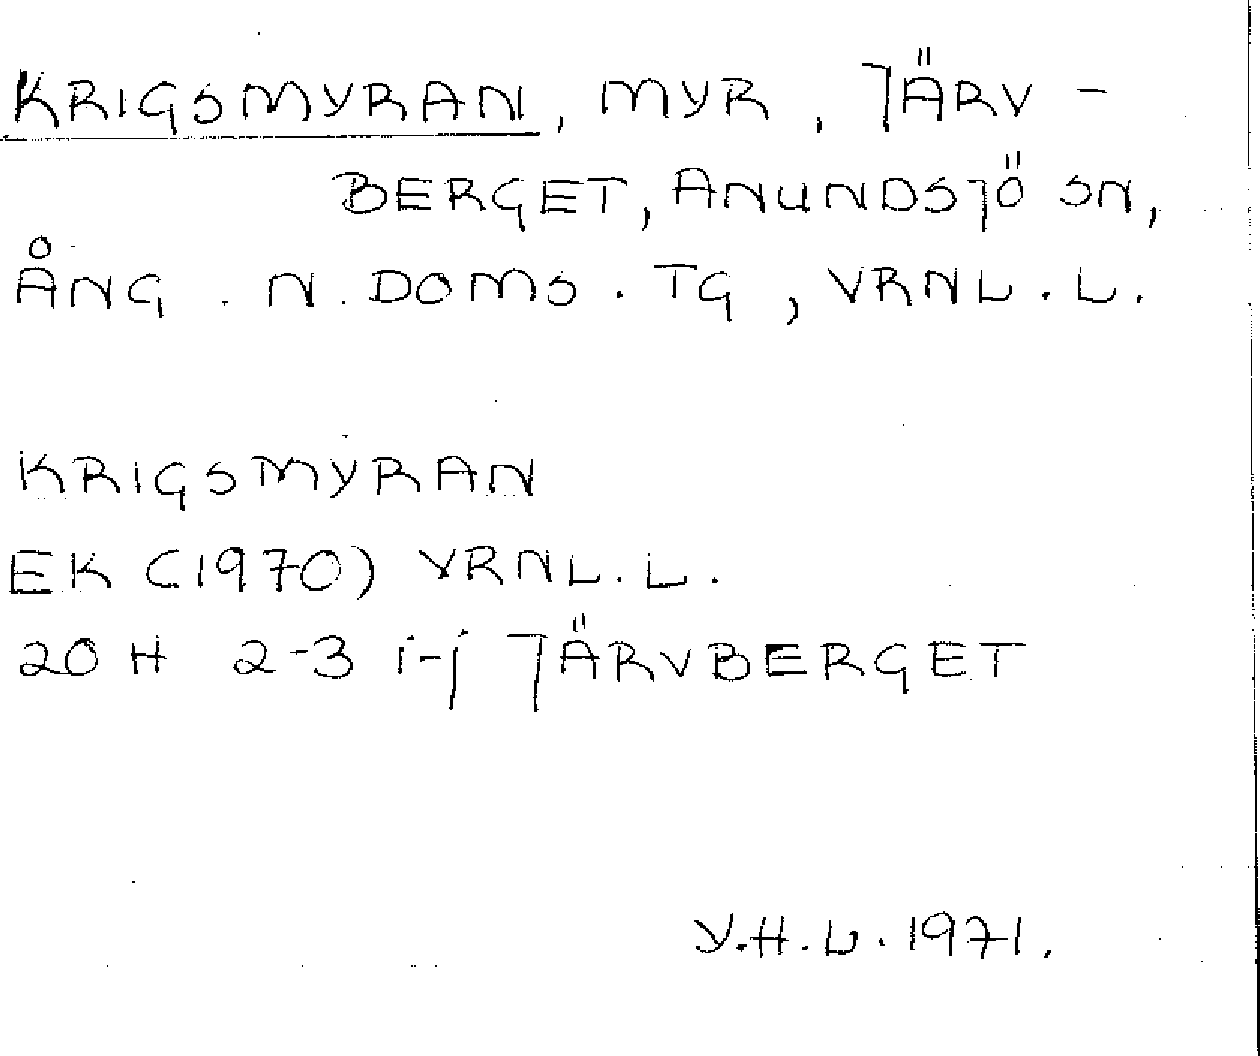 KRIGSMYRAN, MYR, JÄRV-
BERGET, ANUNDSJÖ SN,
ÅNG. N. DOMS. TG, VRNL. L.
KRIGSMYRAN
EK (1970) VRNL. L.
20 H 2-3 i-j JÄRVBERGET
Y.H.L. 1971.